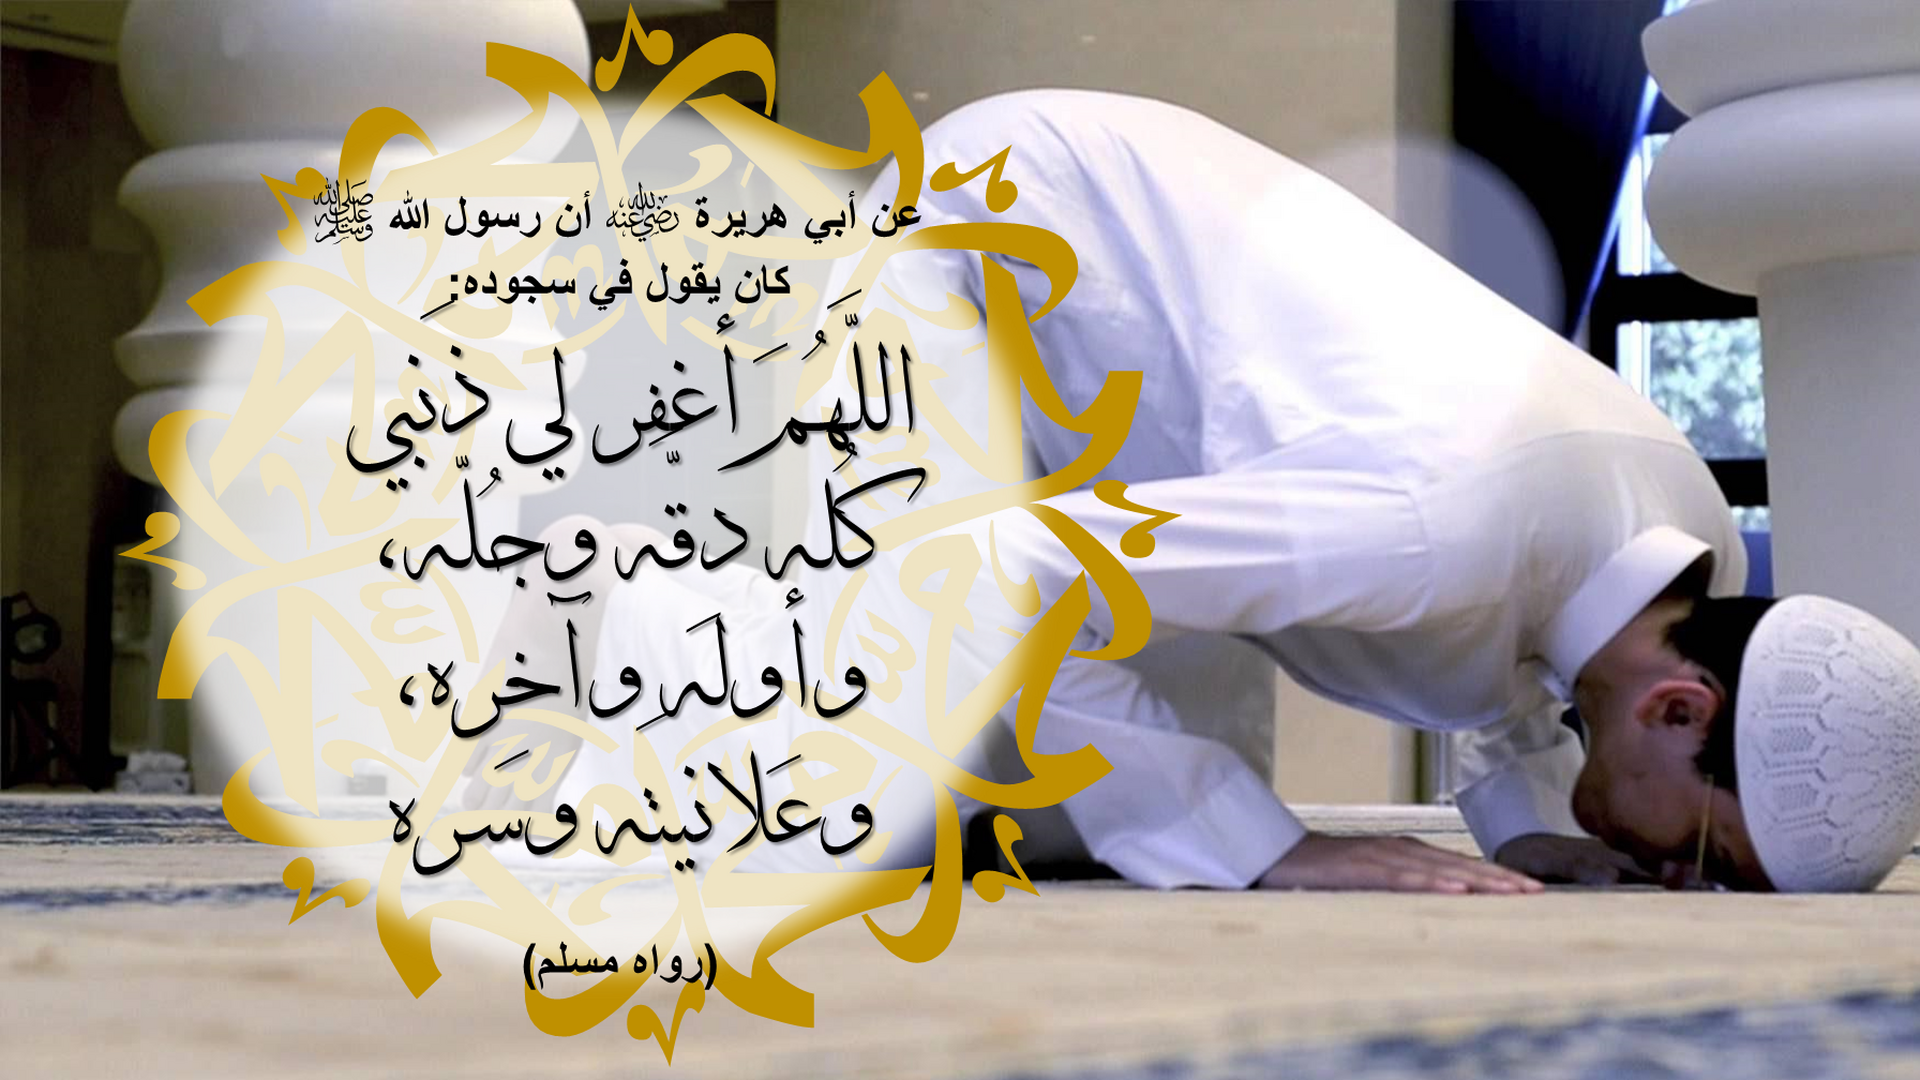 عن أبي هريرة رضي الله عنه أن رسول الله ﷺ
كان يقول في سجوده:
اللَّهُمَ أغفِر لي ذَنبي
كُله دقّه وجُلّه،
وأولَه وآخِرَه،
وعَلانيته وَسَره
(رواه مسلم)